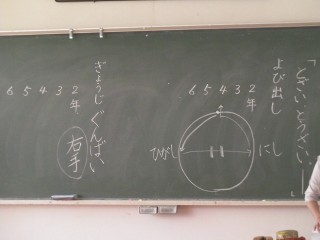 「とざいとうざい――」
よび出し
2年
3
4
5
6
ひがし
にし
ぎょうじ ぐんばい
右手
2年
3
4
5
6